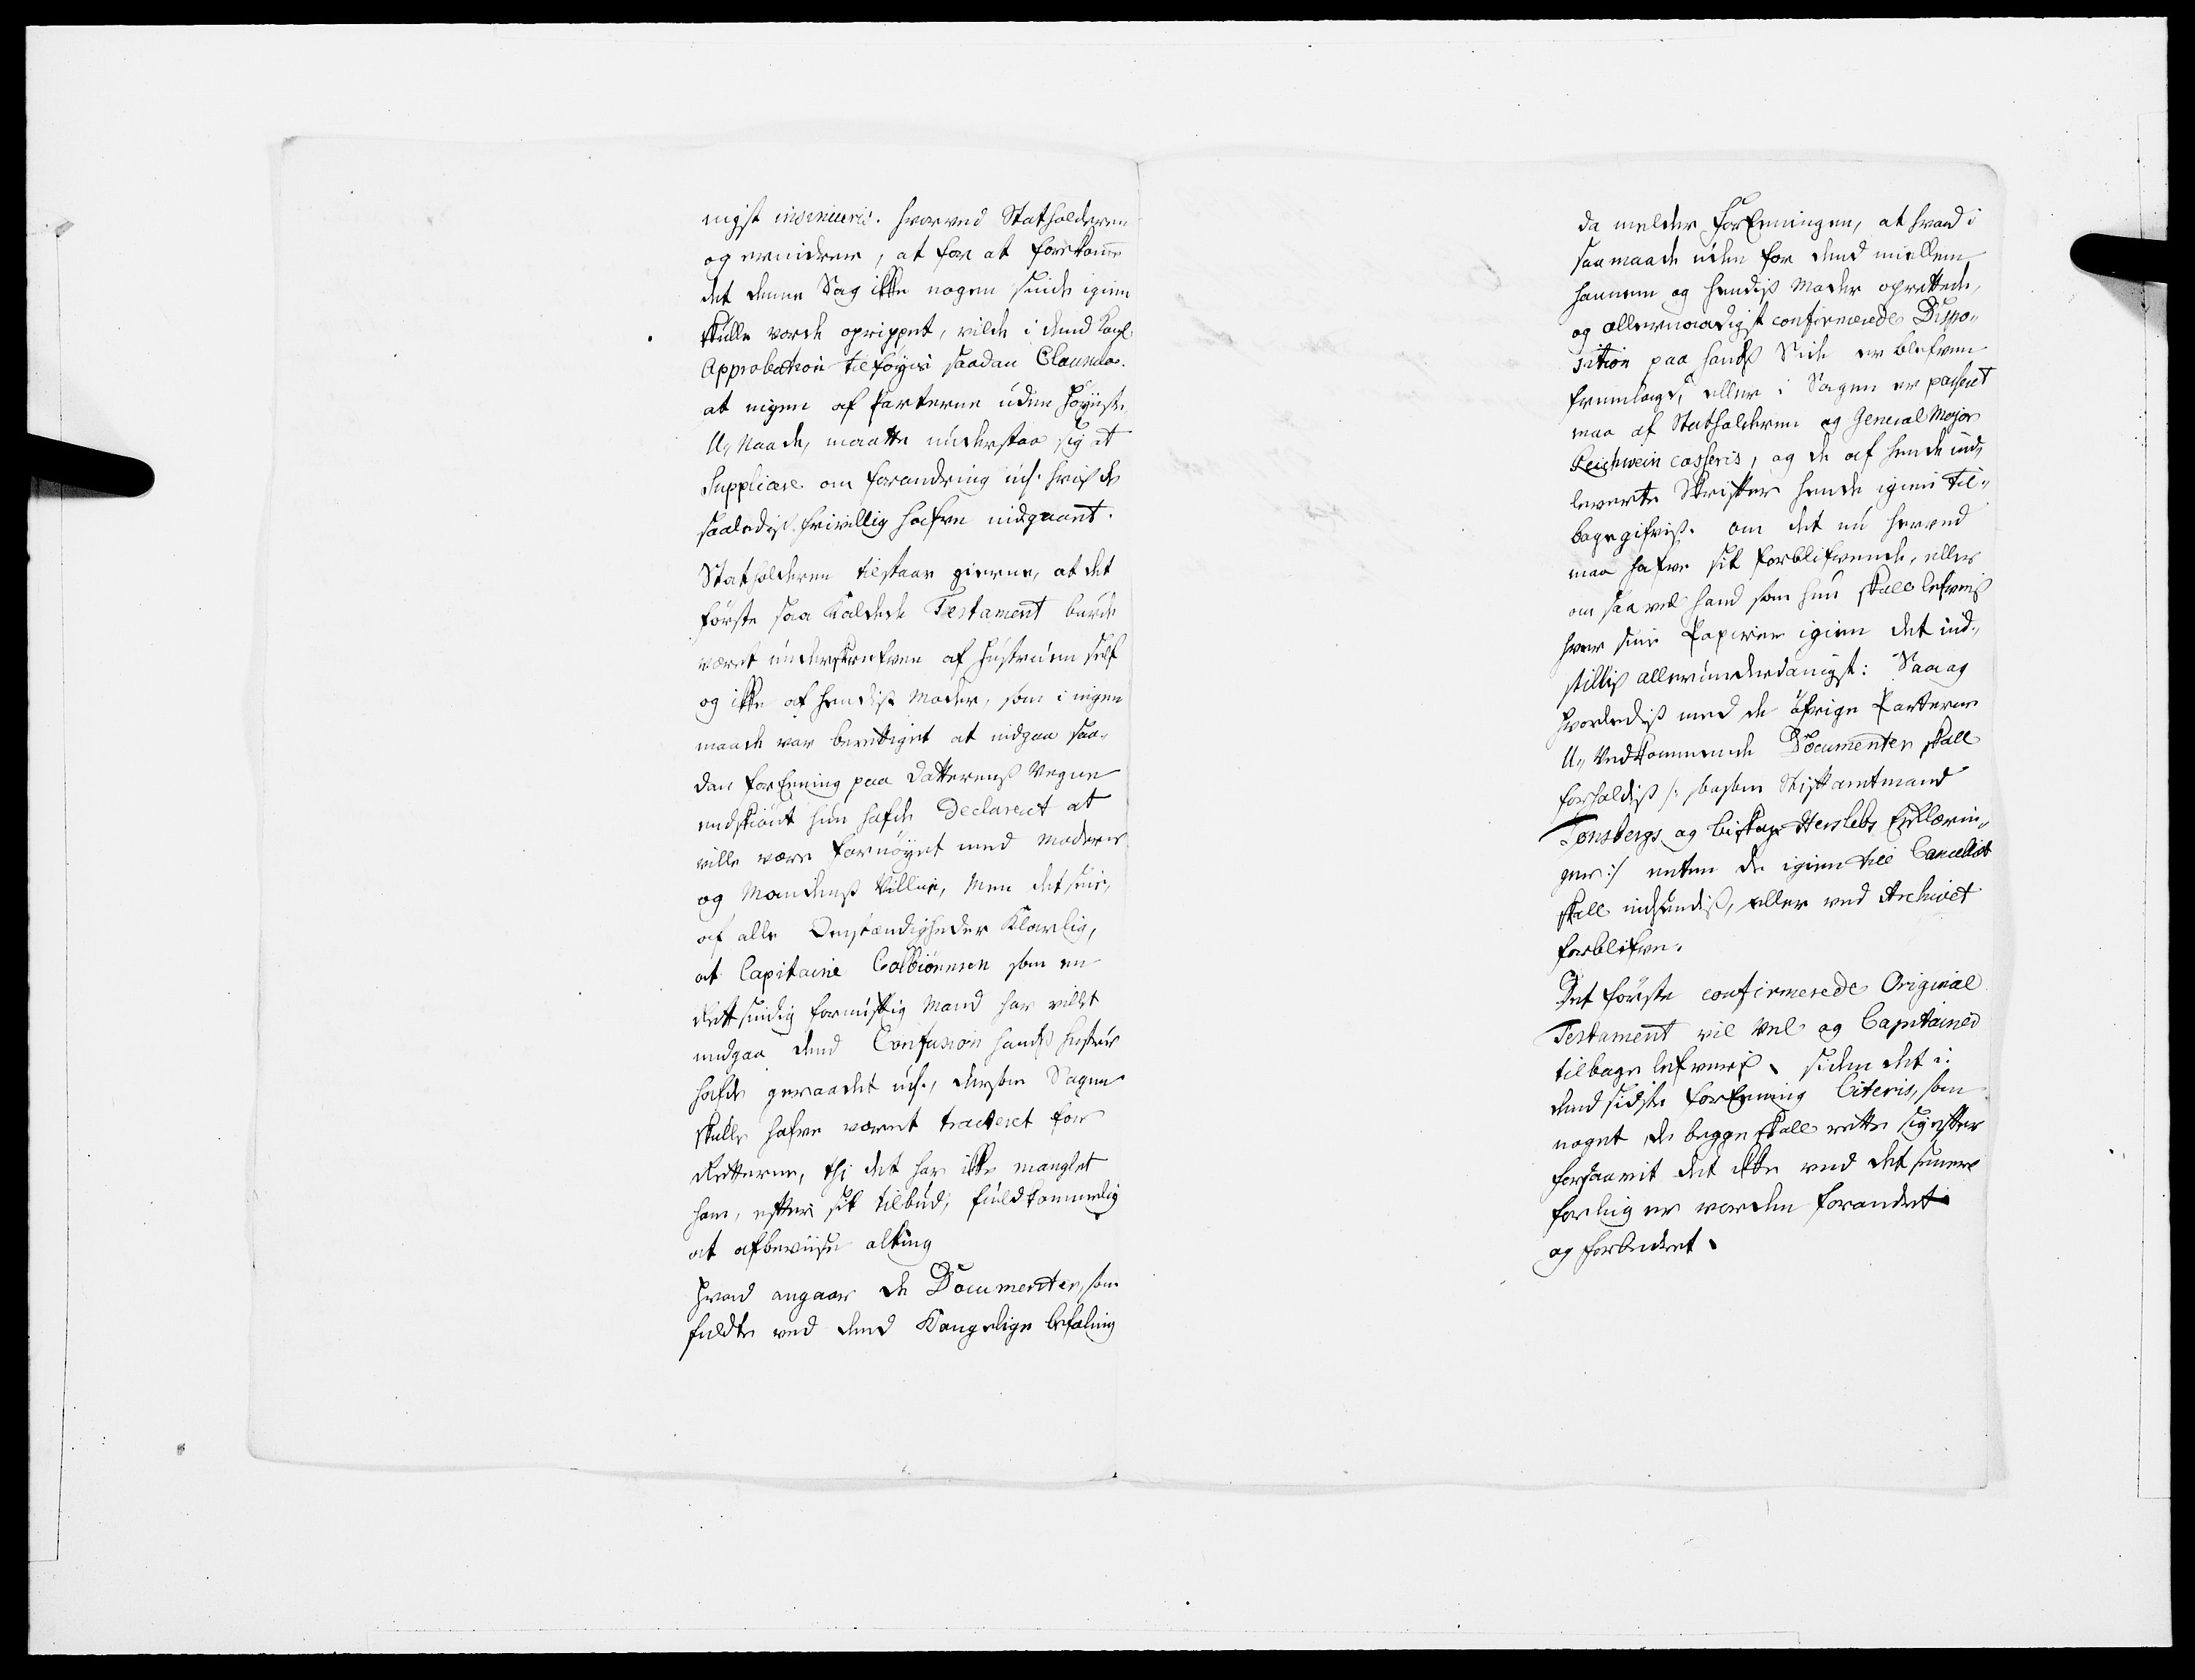 nigst insinueris. hvorved Statholderen
og erindrer, at for at forekomme
det denne Sag ikke nogen sinde igien
skulle vorde oprippet, vilde i dend Kongl.
Approbation tilføyes saadan Clausula.
at nigen af Parterne uden høyeste
U-Naade, maatte understaa sig at
Supplicere om forandring udj. hvis de
saaledis frivillig hafver indgaaet.
Statholderen tilstaar gierne, at det
første saa kaldede Testament burde
været underskrefven af Hustruen self
og ikke af hendis Moder, som i nigen
maade var berettiget at indgaa saa-
dan forEening paa Datterens Vegne
endskiønt hun hafde Declareret at
ville være fornøyet med Moderens
og Mandens Villie, Men det siuis,
af alle Omstændigheder klarlig,
at Capitaine Colbiønnsen som en
Rettsindig fornuftig Mand har villet
undgaa dend Confusion hands Hustrue
hafde geraadet udj., dersom Sagen
skulle hafve været tracteret for
Retterne, thi det har ikke manglet
ham, efter sit tilbud, fuldkommelig
at afbeviise alting
Hvad angaar de Documenter, som
fuldte ved dend Kongelige befaling
da melder ForEeningen, at hvad i
saa maade uden for dend mellem
hannem og hendis Moder oprettede,
og allernaadigst confirmerede Dispo-
sition paa hands Side er blefven
fremlagt, eller i Sagen er passeret
maa af Statholderen og General Major
Reichwein casseris, og de af hende ind-
leverte Skrifter hende igien til-
bagegifvis. om det nu herved
maa hafve sit forblifvende, eller
om saa vel hand som hun skall lefveris
hver sine Papirer igien det ind-
stillis allerunderdanigst: Saa og
hvorledis med de øfrige Parterne
U-Vedkommende Documenter skall
forholdis /: saasom Stiftamtmand
Tonsbergs og biskop Herslebs Erklærin-
ger :/ enten de igien till Cancelliet
skall indsendis, eller ved Archivet
forblifve.
Det første confirmerede Original
Testament vil Vel og Capitainen
tilbage lefveris, siden det i
dend sidste forEening Citeris, som
noget de begge skall rette sig efter
forsaavit det ikke ved det senere
forliig er vorden forandret
og forbedret.